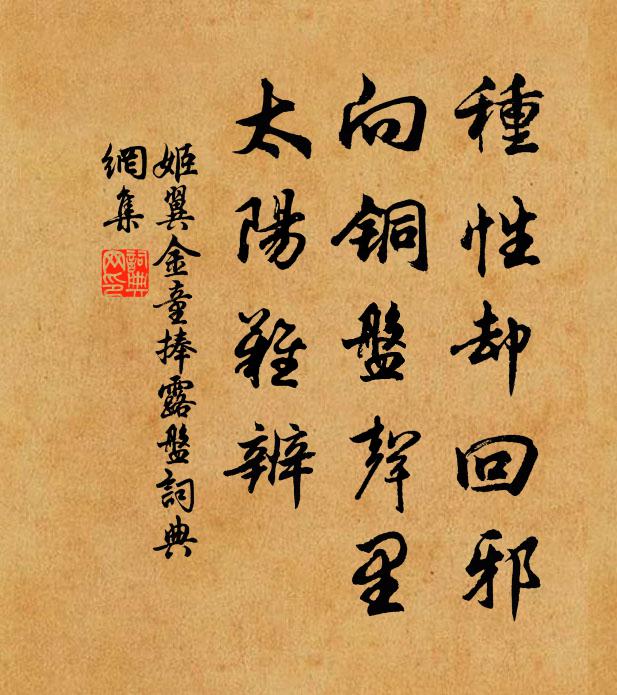 種性却回邪
向铜盤聲里
太陽難辨
姬翼金童捧露盤詞典
網集
詞典網印